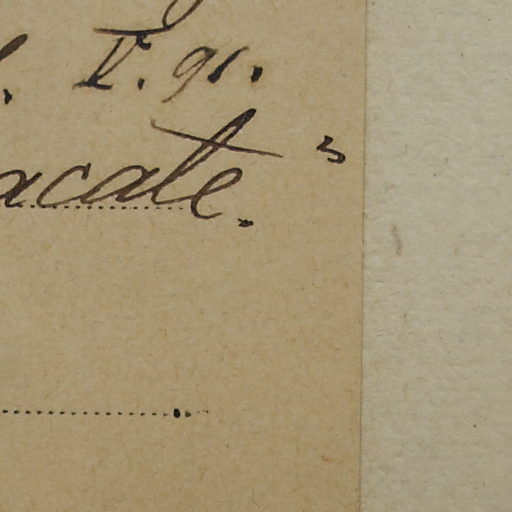 V. 91.
acate."